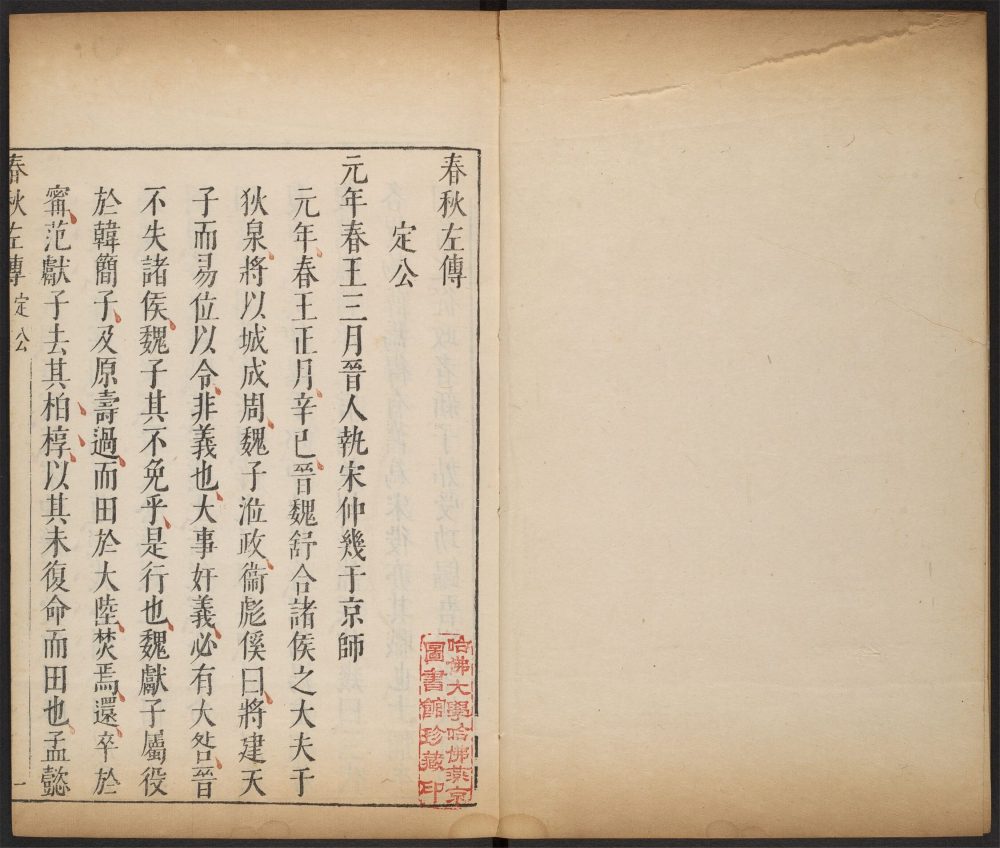 春秋左傳
定公
元年春王三月晉人執宋仲幾于京師
元年春王正月辛巳晉魏舒合諸侯之大夫于
狄泉將以城成周魏子涖政衞彪傒曰將建天
子而易位以令非義也大事奸義必有大咎晉
不失諸侯魏子其不免乎是行也魏獻子屬役
於韓簡子及原壽過而田於大陸焚焉還卒於
甯范獻子去其柏椁以其未復命而田也孟懿
春秋左傳 定公 一
哈佛大學哈佛燕京
圖書館珍藏印